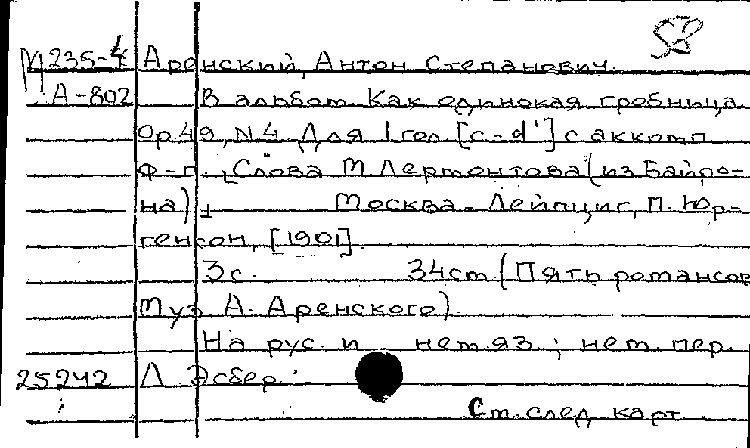 М 235-4 Аренский, Антон Степанович.
А-802 В альбом Как одинокая гробница
Op 49, N4. Для 1 гол [c-d'] с аккомп
ф-п. Слова М Лермонтова (из Байро-
на) Москва - Лейпциг, П. Юр-
генсон, [1901].
3с. 34cm (Пять романсов
Муз А. Аренского).
На рус. и нем яз; нем. пер.
25242 Л Эсбер.
См. след карт